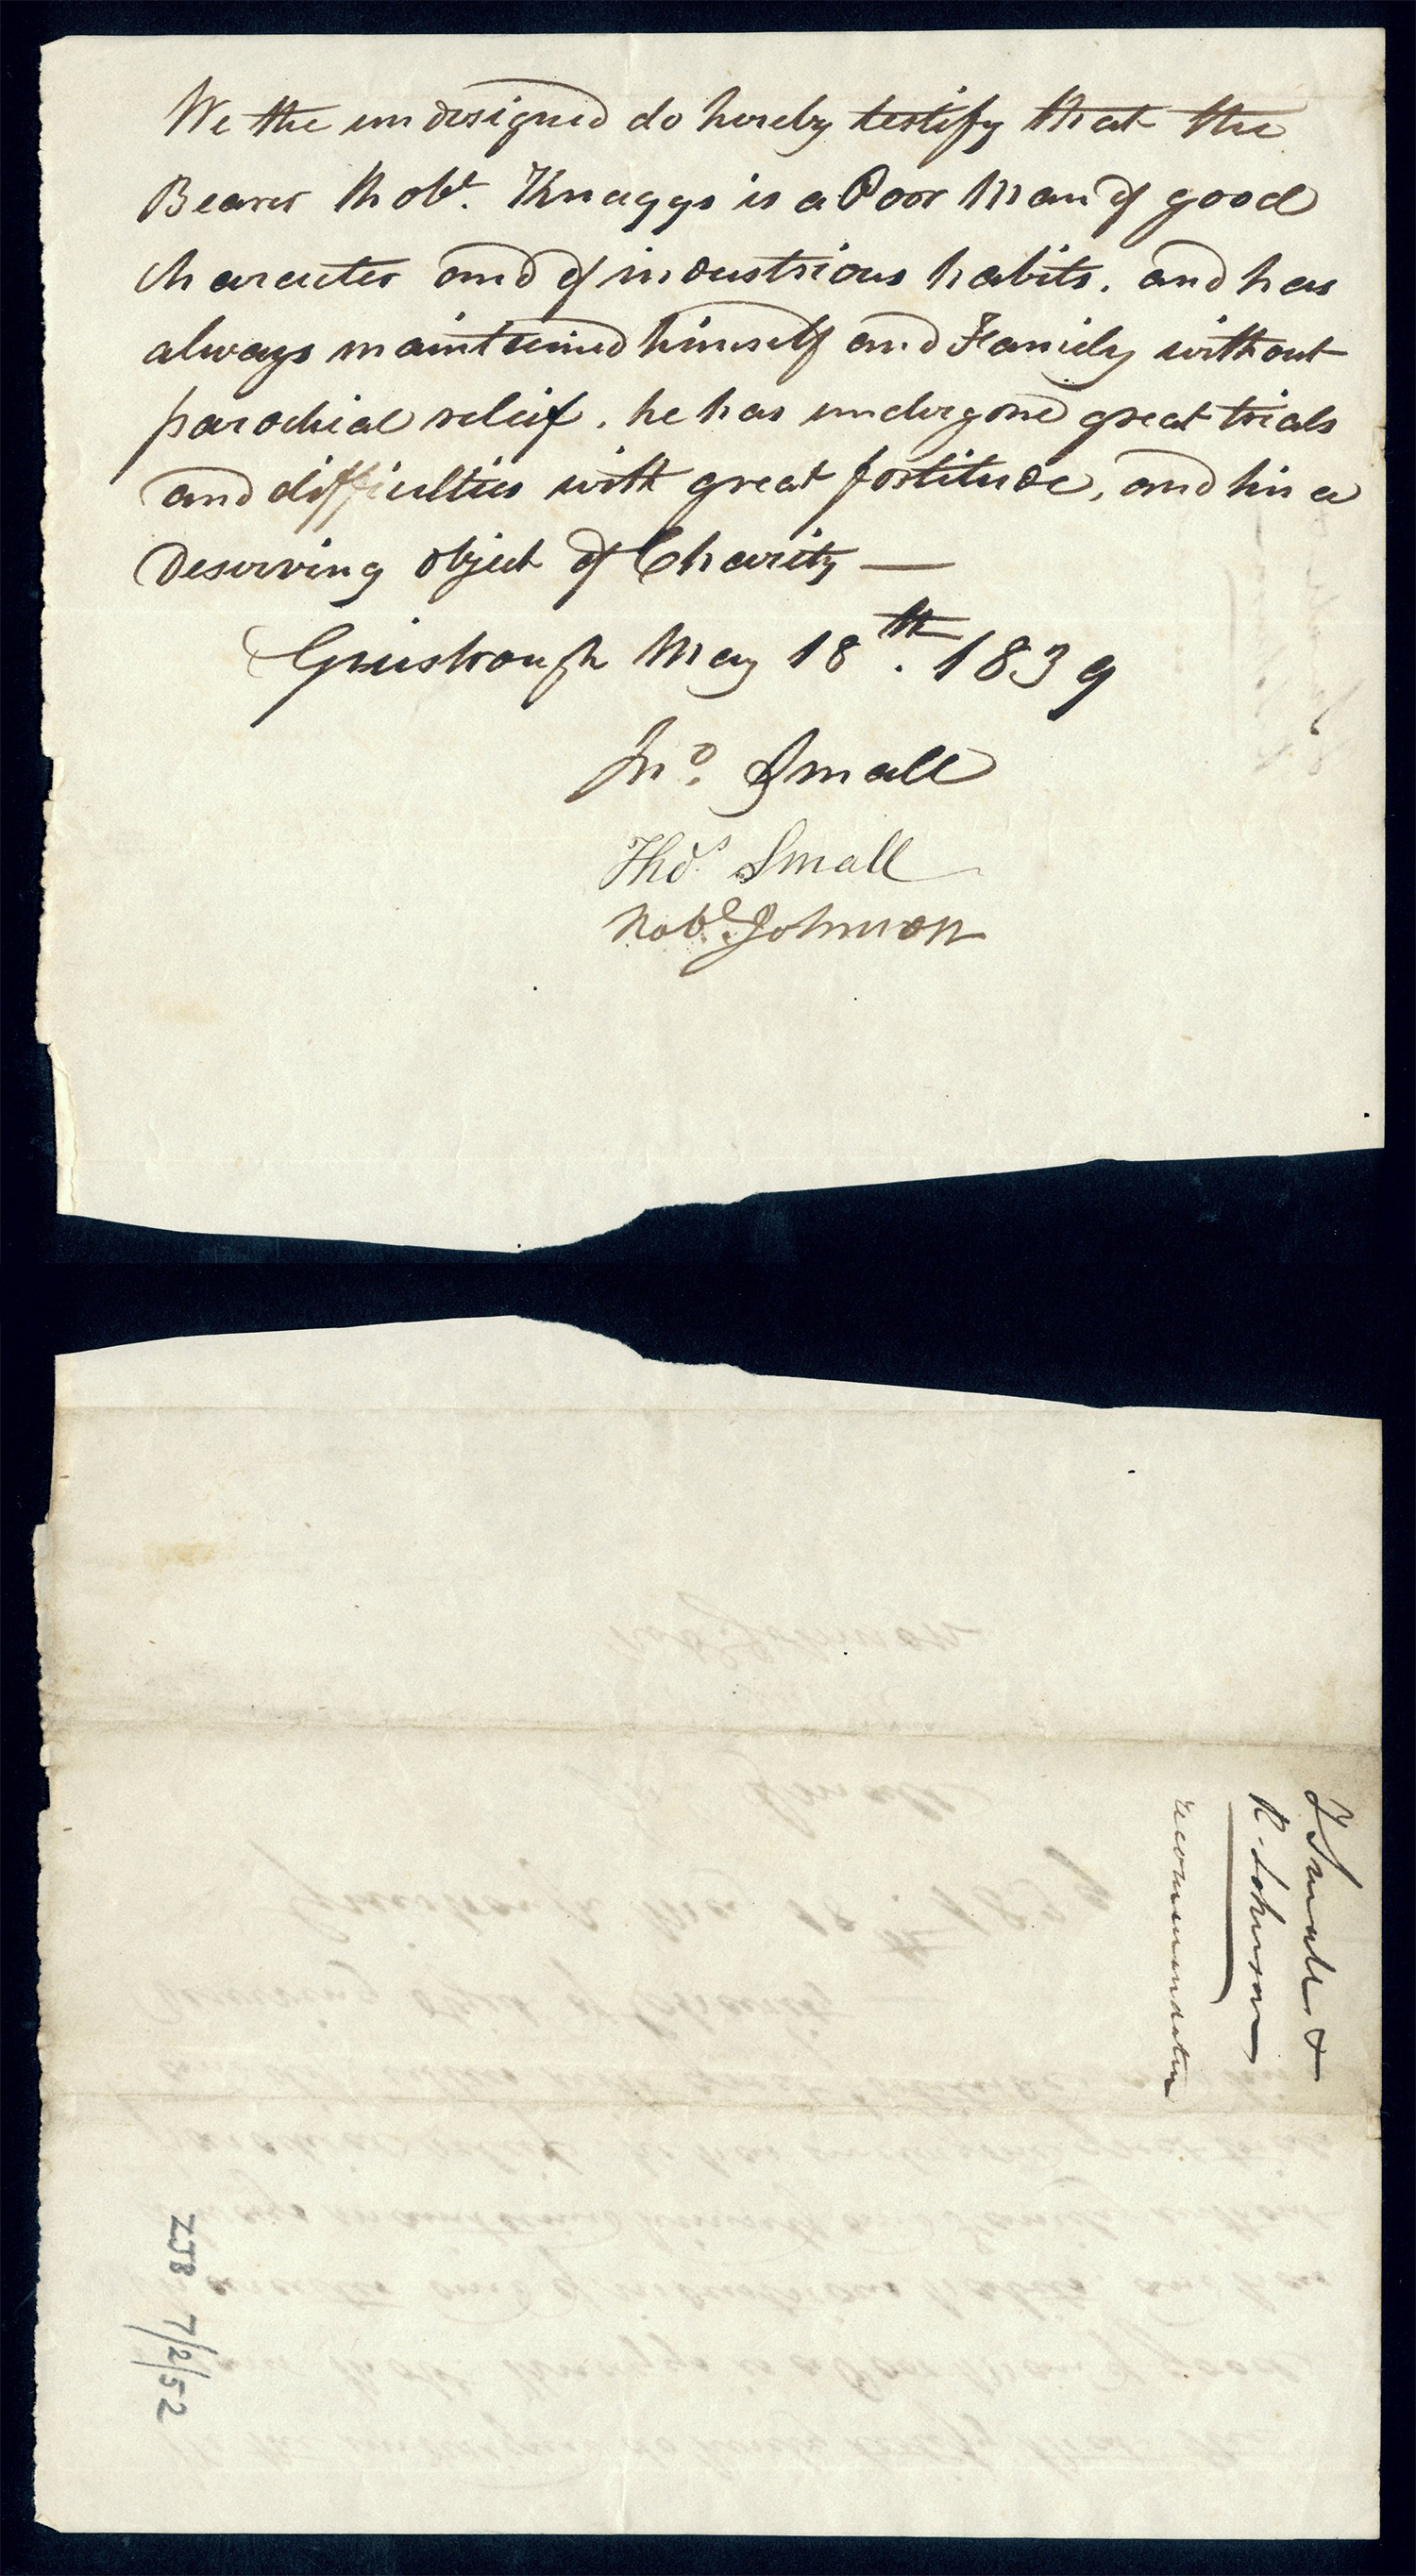 We the undesigned do hereby testify that the
Bearer Robt. Knaggs is a Poor Man of good
character and of industrious habits. and has
always maintained himself and Family without
parochial releif. he has undergone great trials
and difficulties with great fortitude, and his a
Deserving object of Charity —
Guisbrough May 18th. 1839
Jno. Small
Thos. Small
Robt. Johnson
J Small &
R. Johnson
recommendation
ZJB 7/2/52